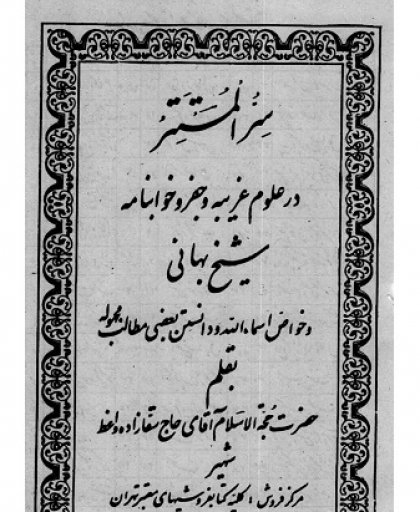 سِرُّ الْمُسْتَتِرْ
در علوم غریبه و جفر و خوابنامه
شیخ بهائی
و خواص اسماء الله و دانستن بعضی مطالب مجهوله
بقلم
حضرت حجة الاسلام آقای حاج سقازاده واعظ
شهیر
مرکز فروش : کلیه کتابفروشیهای معتبر تهران